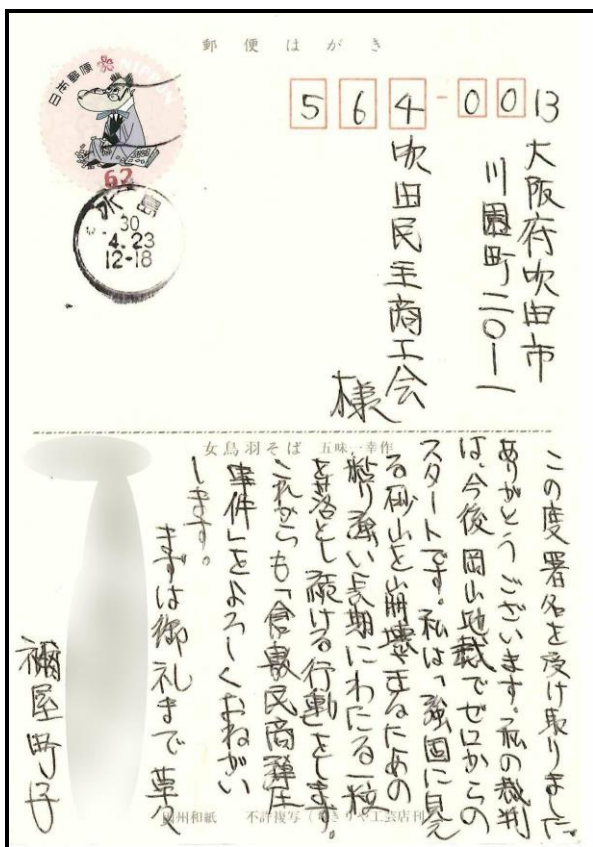 郵便はがき
日本郵便
NIPPON
62
水島
30
4.23
12-18
564-0013
大阪府吹田市
川園町二〇ー一
吹田民主商工会
様
女鳥羽そば 五味一幸作
この度署名を受け取りました。
ありがとうございます。私の裁判
は、今後岡山地裁でゼロからの
スタートです。私は「強固に見え
る砂山を崩壊させるための
粘り強い長期にわたる一粒
を落とし続ける行動」をします。
これからも「倉敷民商弾圧
事件」をよろしくおねがい
します。
まずは御礼まで 草々
禰屋町子
州和紙 不許複写(ちきりや工芸店刊)